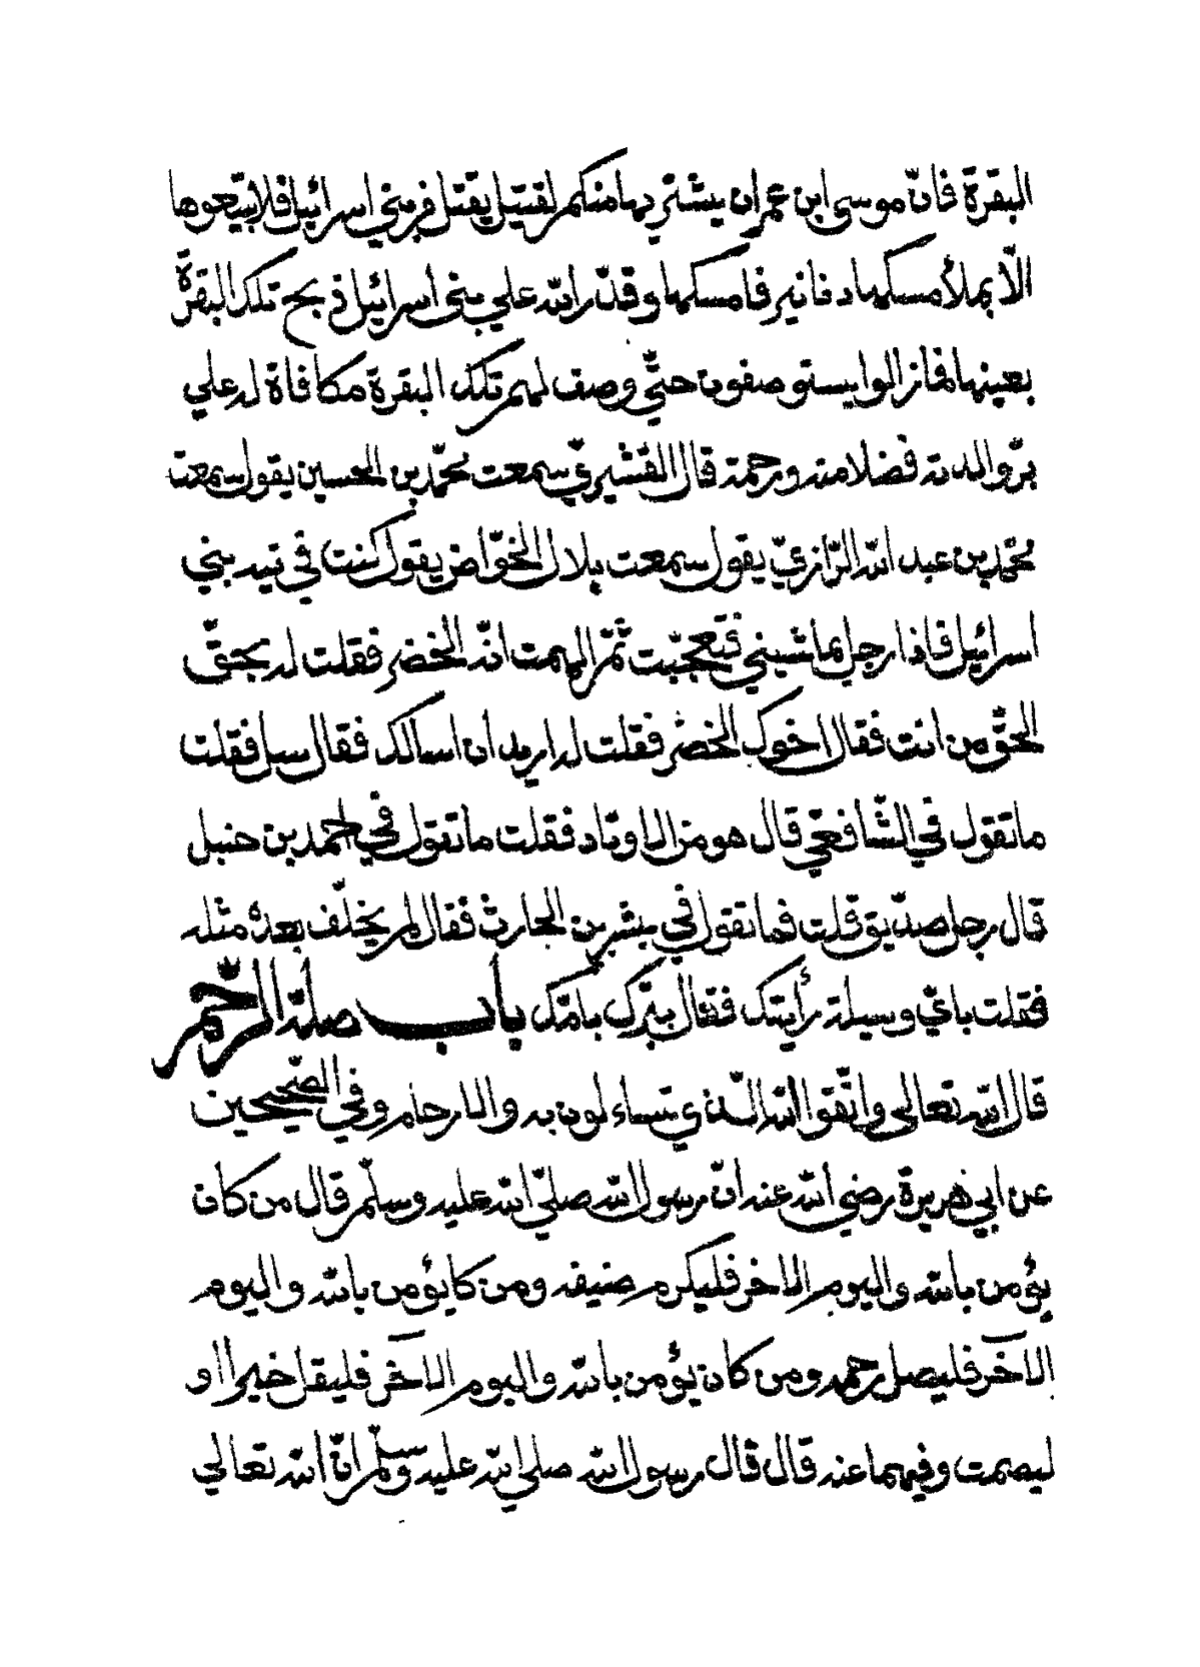 البقرة فانّ موسى ابن عمران يشتريها منكم لقتيل يقتل في بني اسرائيل فلا تبيعوها
الّا بملأ مسكها دنانير فامسكها وقدّر الله علي بني اسرائيل ذبح تلك البقرة
بعينها فما زالوا يستوصفون حتّي وصف لهم تلك البقرة مكافاة له علي
برّ والدته فضلا منه ورحمة قال القشيريّ سمعت محمّد بن الحسين يقول سمعت
محمّد بن عبد الله الرّازيّ يقول سمعت بلال الخوّاص يقول كنت في تيه بني
اسرائيل فاذا رجل يماشيني فتعجّبت ثمّ الهمت انّه الخضر فقلت له بحقّ
الحقّ من انت فقال اخوك الخضر فقلت له اريد ان اسالك فقال سل فقلت
ما تقول في الشّافعيّ قال هو من الاوتاد فقلت ما تقول في احمد بن حنبل
قال رجل صدّيق قلت فما تقول في بشر بن الحارث فقال لم يخلّف بعده مثله
فقلت بايّ وسيلة رأيتك فقال ببرّك بامّك باب صلة الرّحم
قال الله تعالى واتّقوا الله الّذي تساءلون به والارحام وفي الصّحيحين
عن ابي هريرة رضي الله عنه انّ رسول الله صلّي الله عليه وسلّم قال من كان
يؤمن بالله واليوم الاخر فليكرم ضيفه ومن كا يؤمن بالله واليوم
الآخر فليصل رحمه ومن كان يؤمن بالله واليوم الآخر فليقل خيرا او
ليصمت وفيهما عنه قال قال رسول الله صلي الله عليه وسلّم انّ الله تعالي